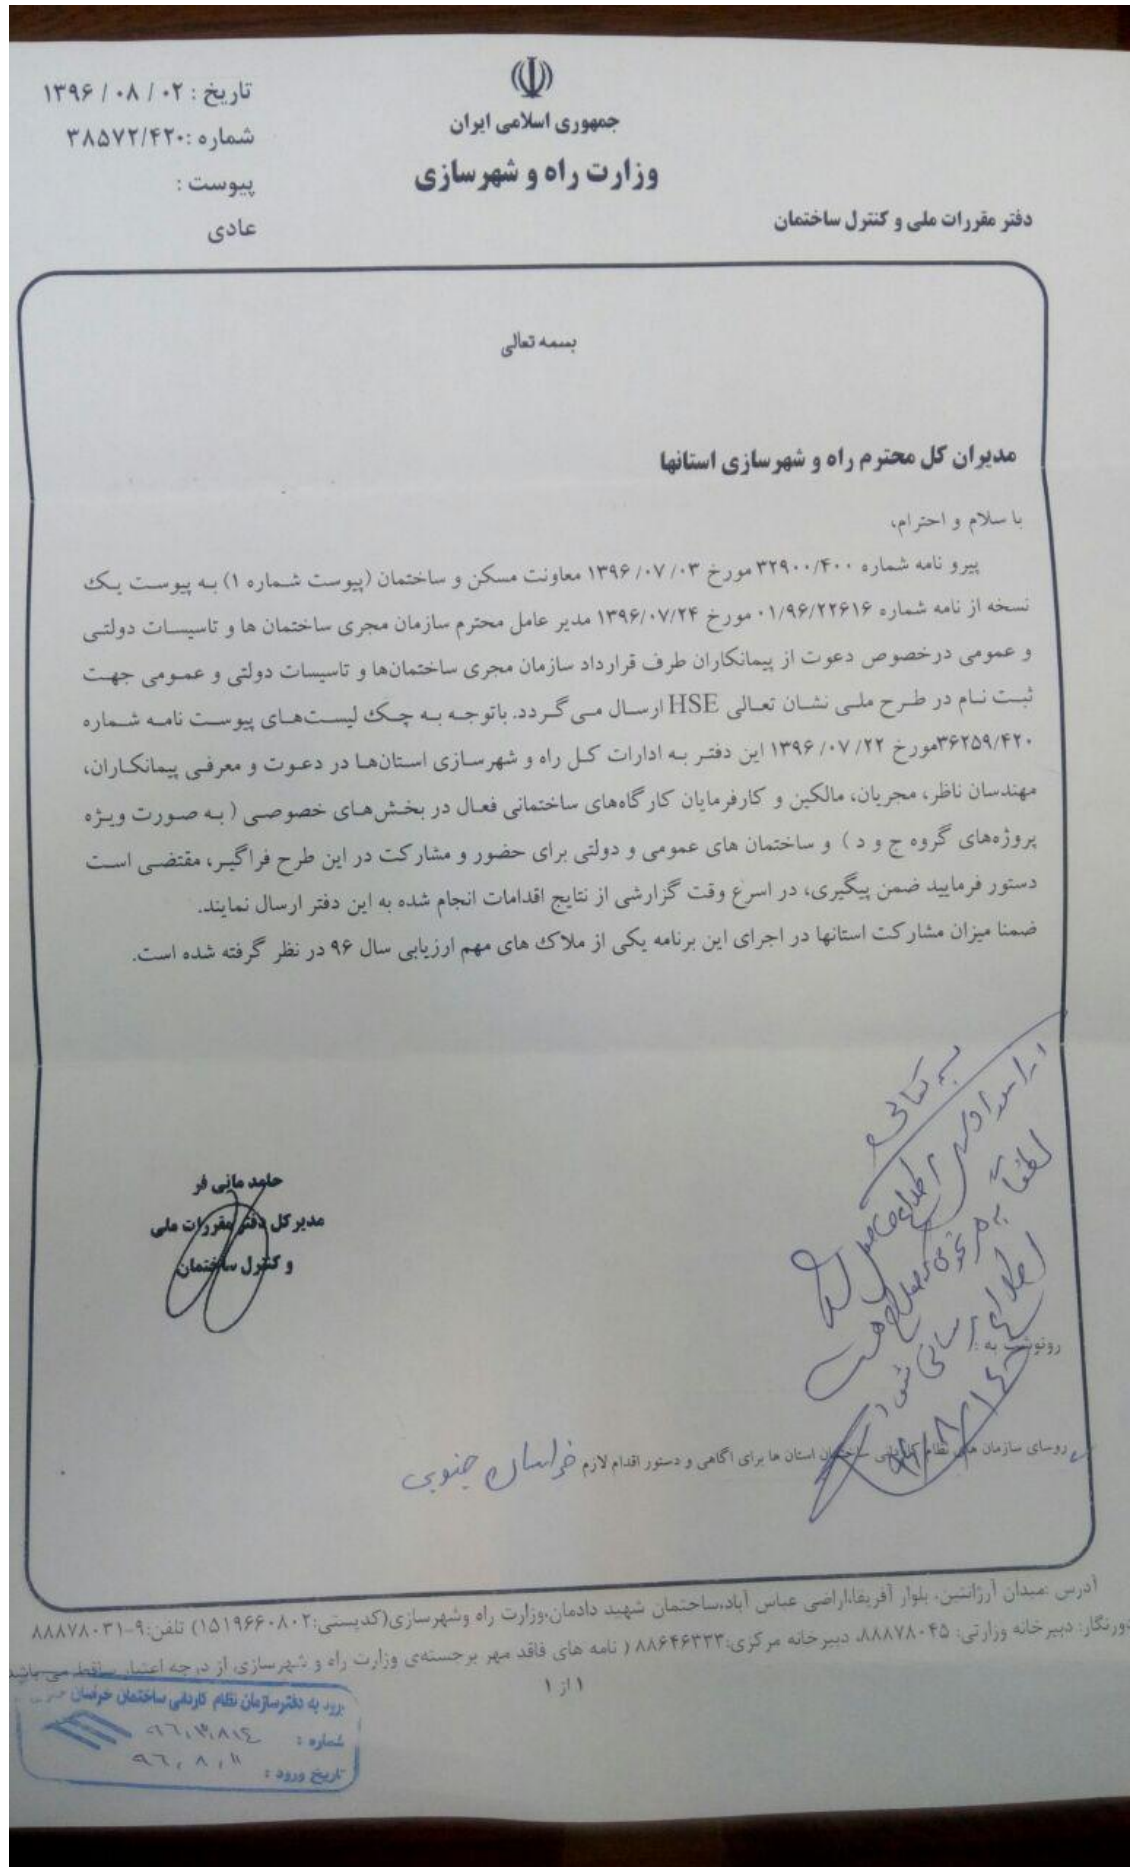 جمهوری اسلامی ایران
وزارت راه و شهرسازی
تاریخ : ۱۳۹۶ / ۰۸ / ۰۲
شماره :۳۸۵۷۲/۴۲۰
پیوست :
عادی
دفتر مقررات ملی و کنترل ساختمان
بسمه تعالی
مدیران کل محترم راه و شهرسازی استانها
با سلام و احترام،
پیرو نامه شماره ۳۲۹۰۰/۴۰۰ مورخ ۱۳۹۶/۰۷/۰۳ معاونت مسکن و ساختمان (پیوست شماره ۱) به پیوست یک
نسخه از نامه شماره ۰۱/۹۶/۲۲۶۱۶ مورخ ۱۳۹۶/۰۷/۲۴ مدیر عامل محترم سازمان مجری ساختمان ها و تاسیسات دولتی
و عمومی درخصوص دعوت از پیمانکاران طرف قرارداد سازمان مجری ساختمان‌ها و تاسیسات دولتی و عمومی جهت
ثبت نام در طرح ملی نشان تعالی HSE ارسال می گردد. باتوجه به چک لیست‌های پیوست نامه شماره
۳۶۲۵۹/۴۲۰مورخ ۱۳۹۶/۰۷/۲۲ این دفتر به ادارات کل راه و شهرسازی استان‌ها در دعوت و معرفی پیمانکاران،
مهندسان ناظر، مجریان، مالکین و کارفرمایان کارگاه‌های ساختمانی فعال در بخش‌های خصوصی ( به صورت ویژه
پروژه‌های گروه ج و د ) و ساختمان های عمومی و دولتی برای حضور و مشارکت در این طرح فراگیر، مقتضی است
دستور فرمایید ضمن پیگیری، در اسرع وقت گزارشی از نتایج اقدامات انجام شده به این دفتر ارسال نمایند.
ضمنا میزان مشارکت استانها در اجرای این برنامه یکی از ملاک های مهم ارزیابی سال ۹۶ در نظر گرفته شده است.
حامد مانی فر
مدیرکل دفتر مقررات ملی
و کنترل ساختمان
لطفاً به
اطلاع رسانی شود
رونوشت به :
روسای سازمان های نظام کاردانی ساختمان استان ها برای آگاهی و دستور اقدام لازم خراسان جنوبی
آدرس :میدان آرژانتین، بلوار آفریقا،اراضی عباس آباد،ساختمان شهید دادمان،وزارت راه وشهرسازی(کدپستی:۱۵۱۹۶۶۰۸۰۲) تلفن:۹-۸۸۸۷۸۰۳۱
دورنگار: دبیرخانه وزارتی: ۸۸۸۷۸۰۴۵، دبیرخانه مرکزی:۸۸۶۴۶۳۳۳ ( نامه های فاقد مهر برجسته‌ی وزارت راه و شهرسازی از درجه اعتبار ساقط می باشد
۱ از ۱
ورود به دفتر سازمان نظام کاردانی ساختمان خراسان
شماره : ۹۶,۳,۸۱٤
تاریخ ورود : ۹۶,۸,۱۱